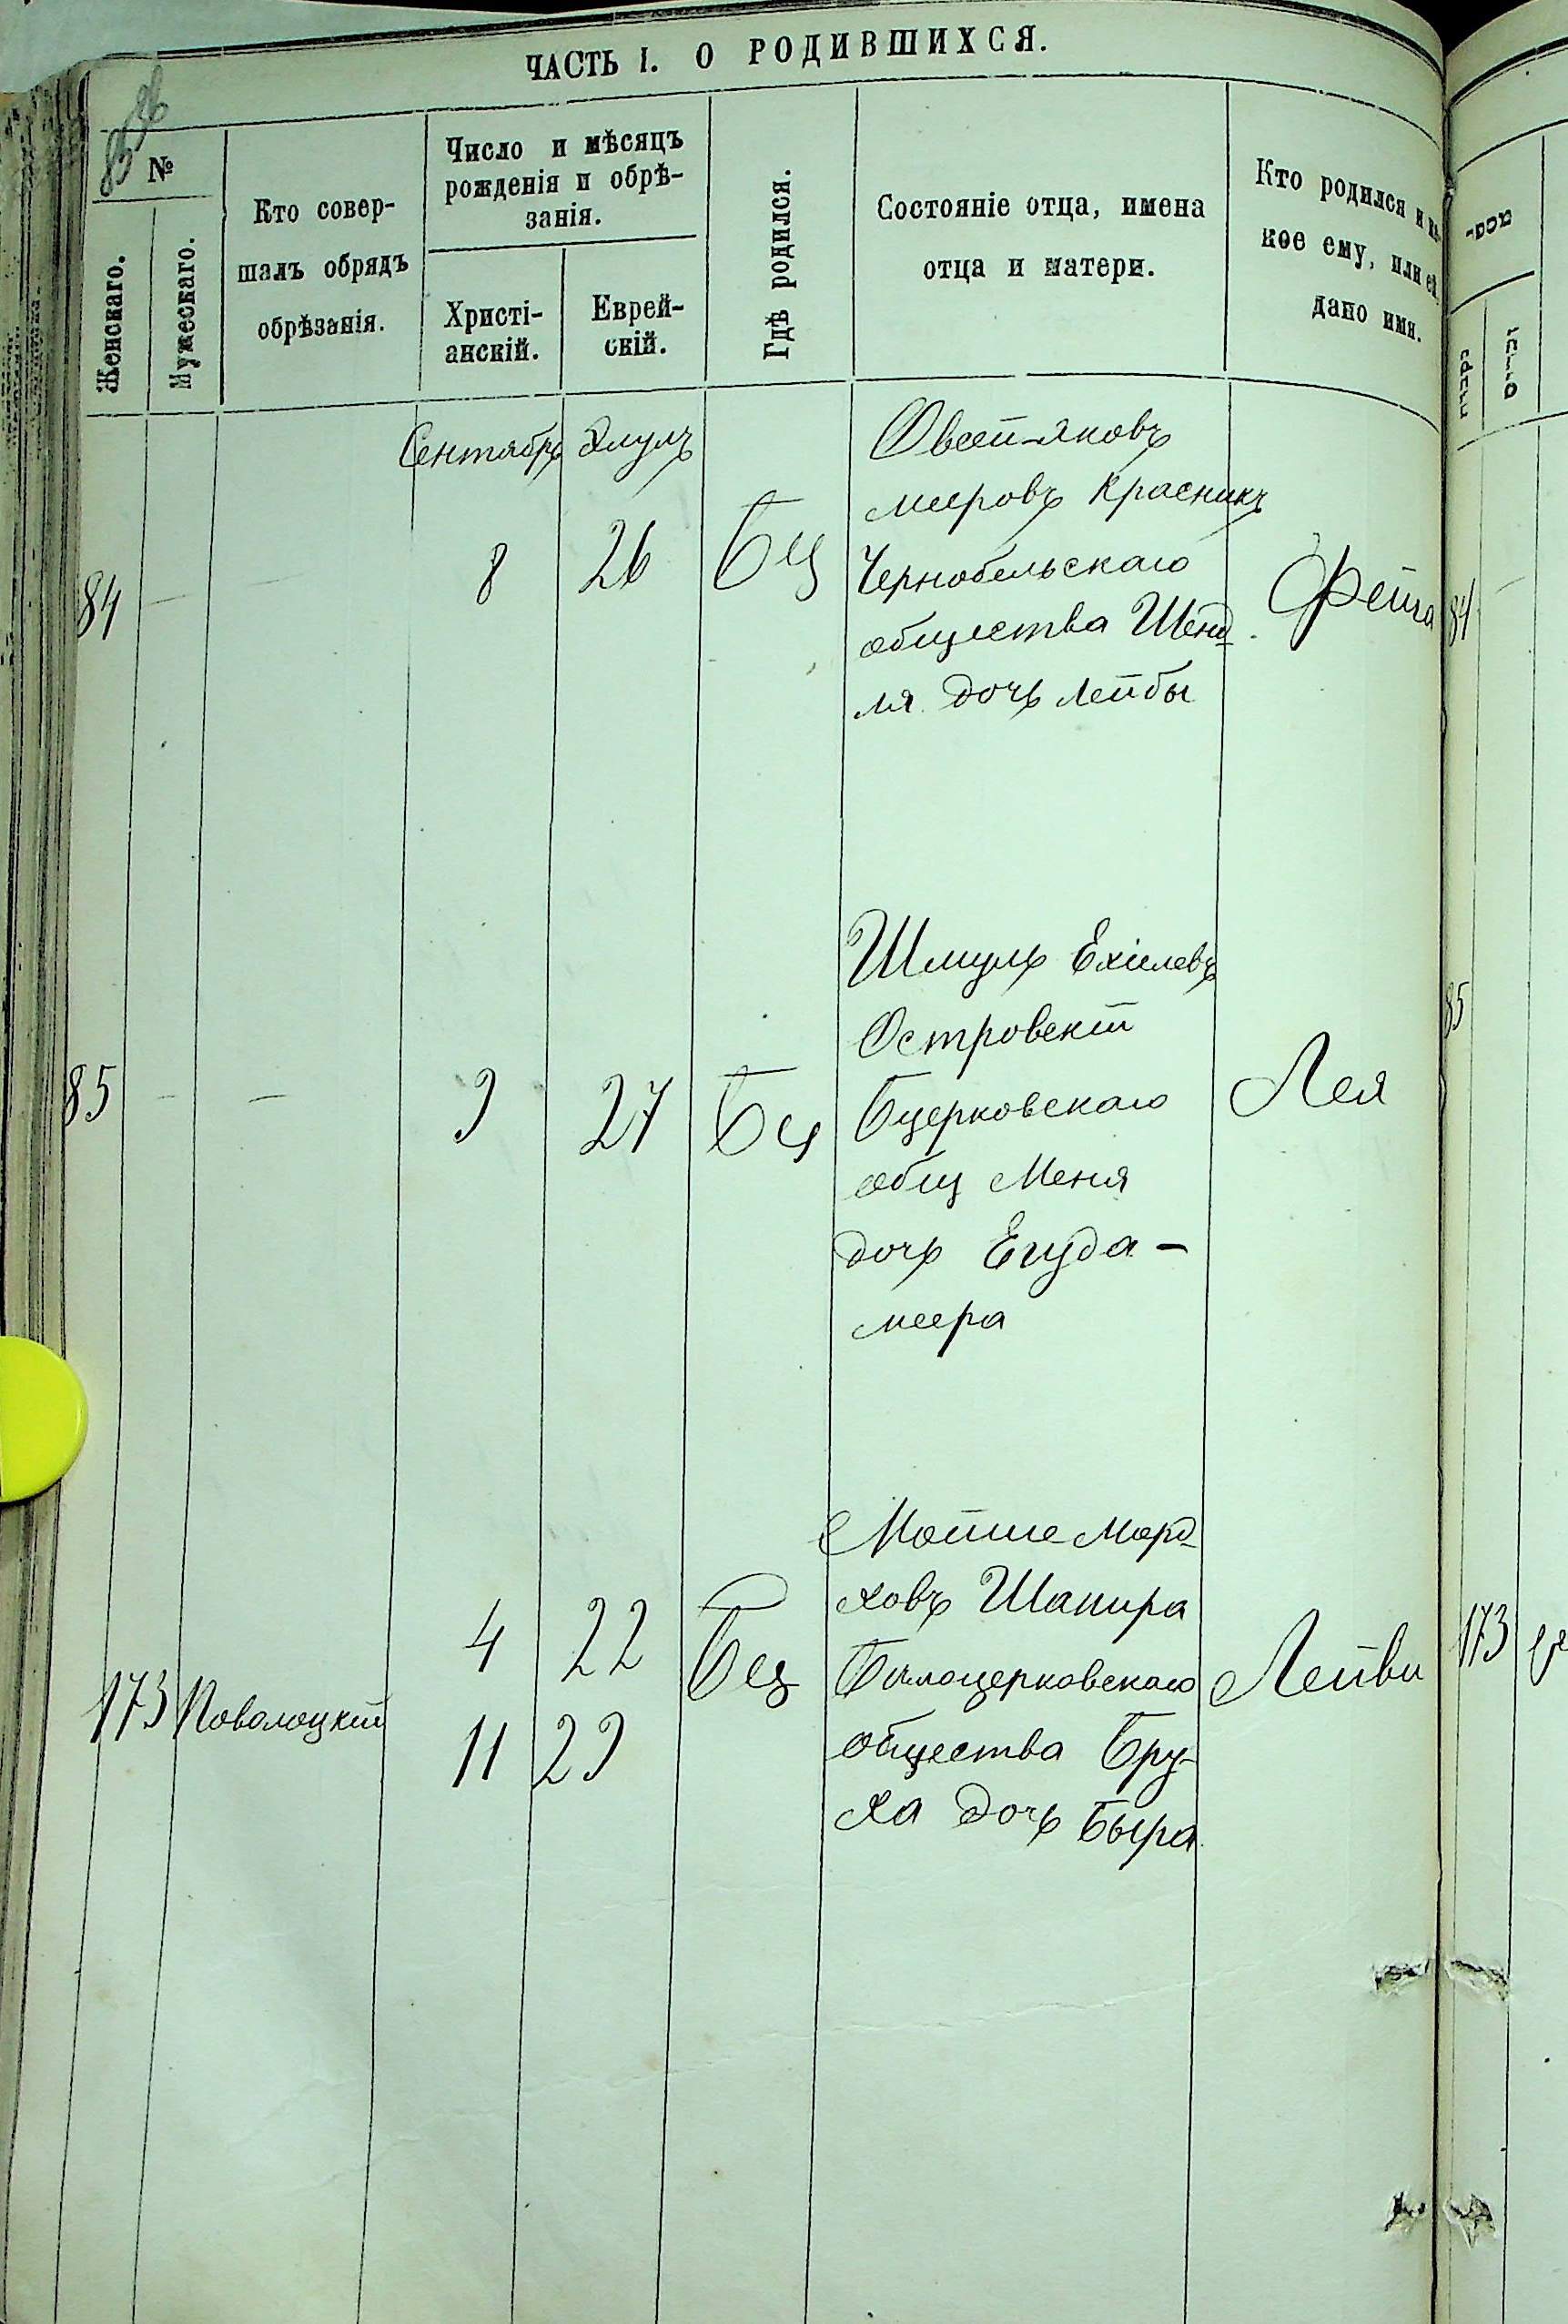 ЧАСТЬ I. О РОДИВШИХСЯ.
№
Женскаго.
Мужескаго.
Кто совер-
шалъ обрядъ
обрѣзанія.
Число и мѣсяцъ
рожденія и обрѣ-
занія.
Христі-
анскій.
Еврей-
скій.
Гдѣ родился.
Состояніе отца, имена
отца и матери.
Кто родился и ка-
кое ему, или ей
дано имя.
Сентябрь Элулъ
84 — — 8 26 Бц
Овсей-Яковъ
мееровъ Красникъ
Чернобельскаго
общества Шенд
ля дочь Лейбы
84
85 — — 9 27 Бц
Шмуль Ехилевъ
Островскій
Бцерковскаго
общ Меня
дочь Егуда-
меера
Лея
85
173 Поволоцкій
4 22
11 29
Бц
Мойше Морд
ховъ Шапира
Бѣлоцерковскаго
общества Бру-
ха дочь Быра
Лейви
173